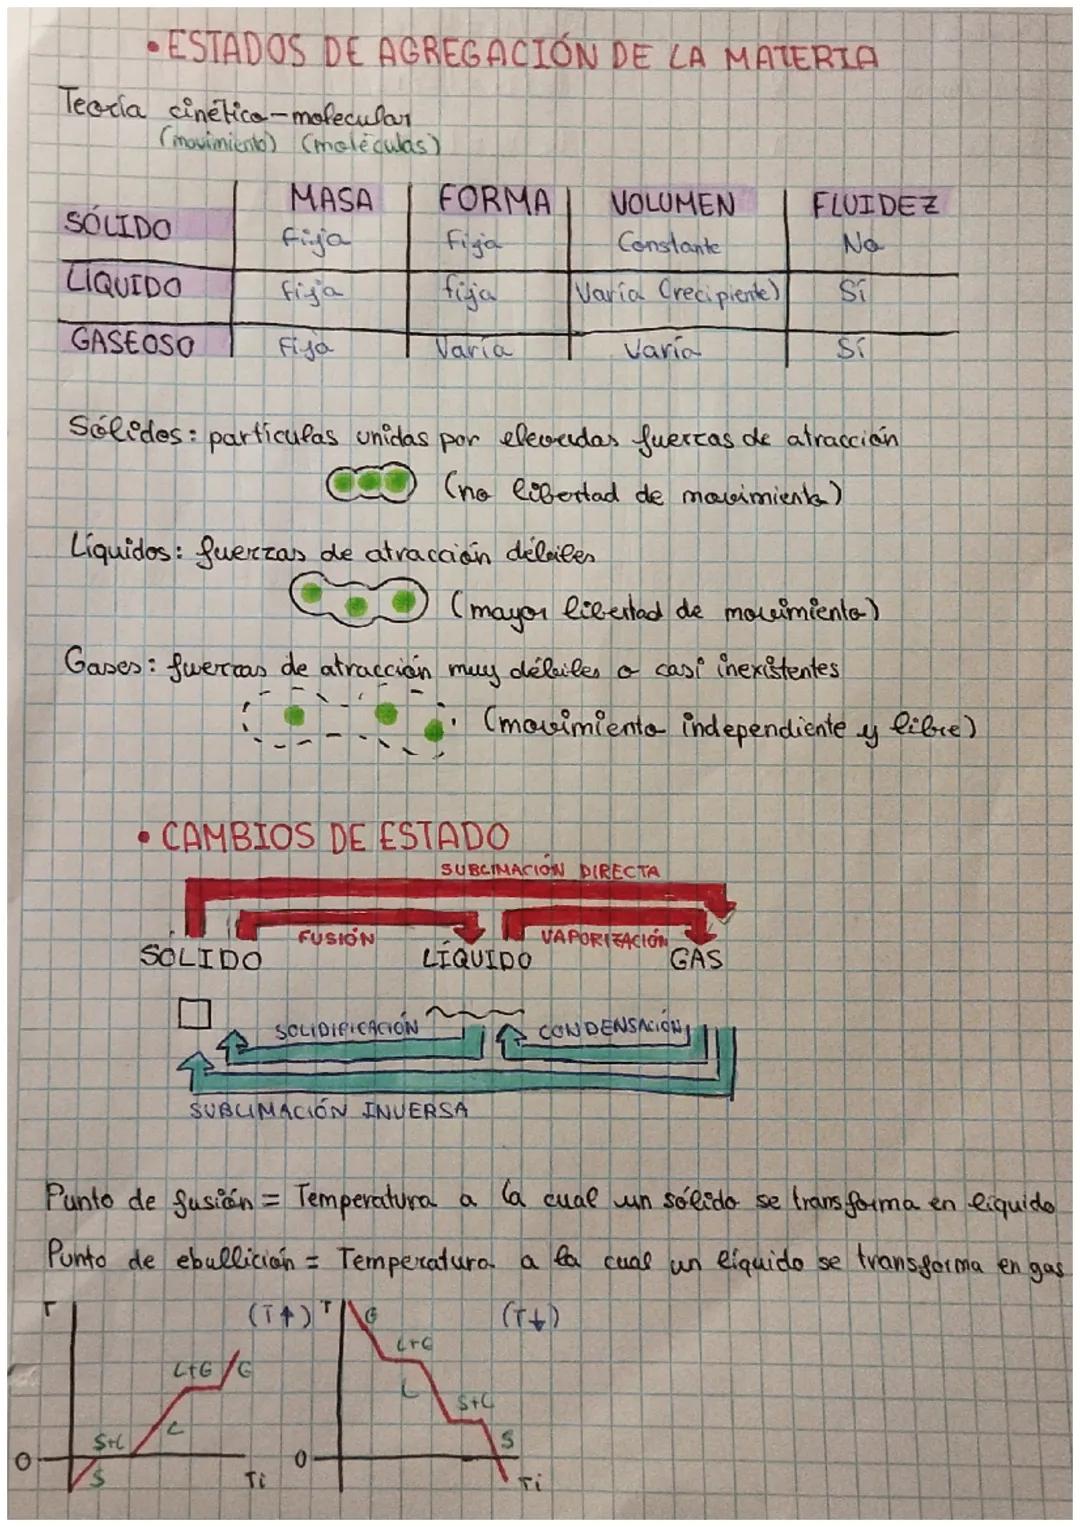 • ESTADOS DE AGREGACIÓN DE LA MATERIA
Teoría cinético-molecular
(movimiento) (moléculas)
MASA FORMA VOLUMEN FLUIDEZ
SÓLIDO fija fija Constante No
LÍQUIDO fija fija Varía (recipiente) Sí
GASEOSO Fija Varía Varía Sí
Sólidos: partículas unidas por elevadas fuerzas de atracción
(no libertad de movimiento)
Líquidos: fuerzas de atracción débiles
(mayor libertad de movimiento)
Gases: fuerzas de atracción muy débiles o casi inexistentes
(movimiento independiente y libre)
• CAMBIOS DE ESTADO
SUBLIMACIÓN DIRECTA
FUSIÓN VAPORIZACIÓN
SÓLIDO LÍQUIDO GAS
SOLIDIFICACIÓN CONDENSACIÓN
SUBLIMACIÓN INVERSA
Punto de fusión = Temperatura a la cual un sólido se transforma en líquido
Punto de ebullición = Temperatura a la cual un líquido se transforma en gas
T (T↑) T G (T↓)
L+G G L+G
L S+L
S+L L S
0 S Ti 0 Ti